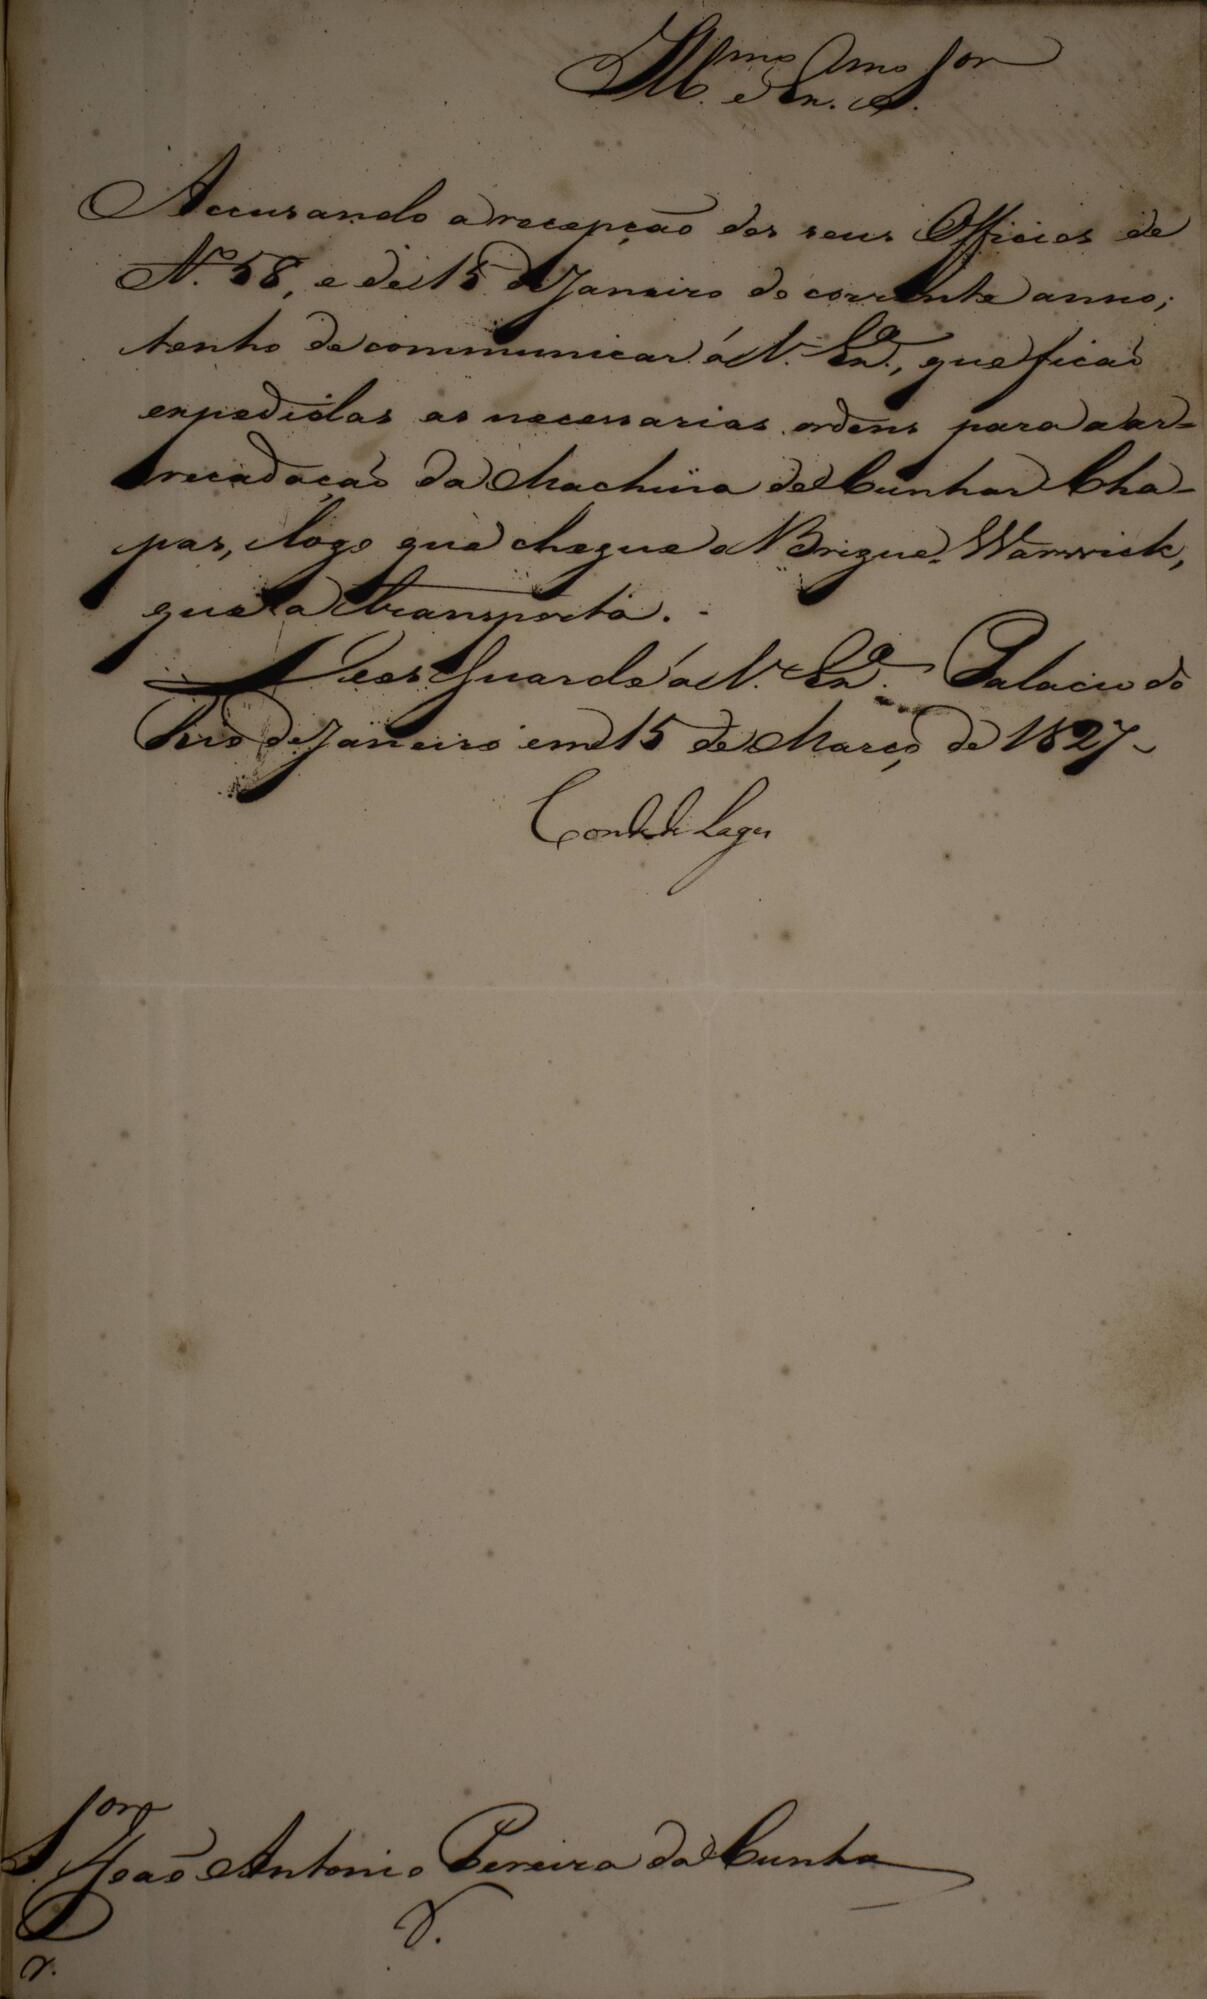 Ill.mo e Ex.mo S.or
Accusando a recepção dos seus Officios de
N.º 58, e de 15 de Janeiro do corrente anno;
tenho de communicar á V. Ex.ª, que ficaõ
expedidas as necessarias ordens para a ar=
recadaçaõ da Machina de Cunhar Cha-
pas, logo que chegue o Brigue Warwick,
que a transporta.
Deos Guarde á V. Ex.ª Palacio do
Rio de Janeiro em 15 de Março de 1827
Conde de Lages
S.or Joaõ Antonio Pereira da Cunha